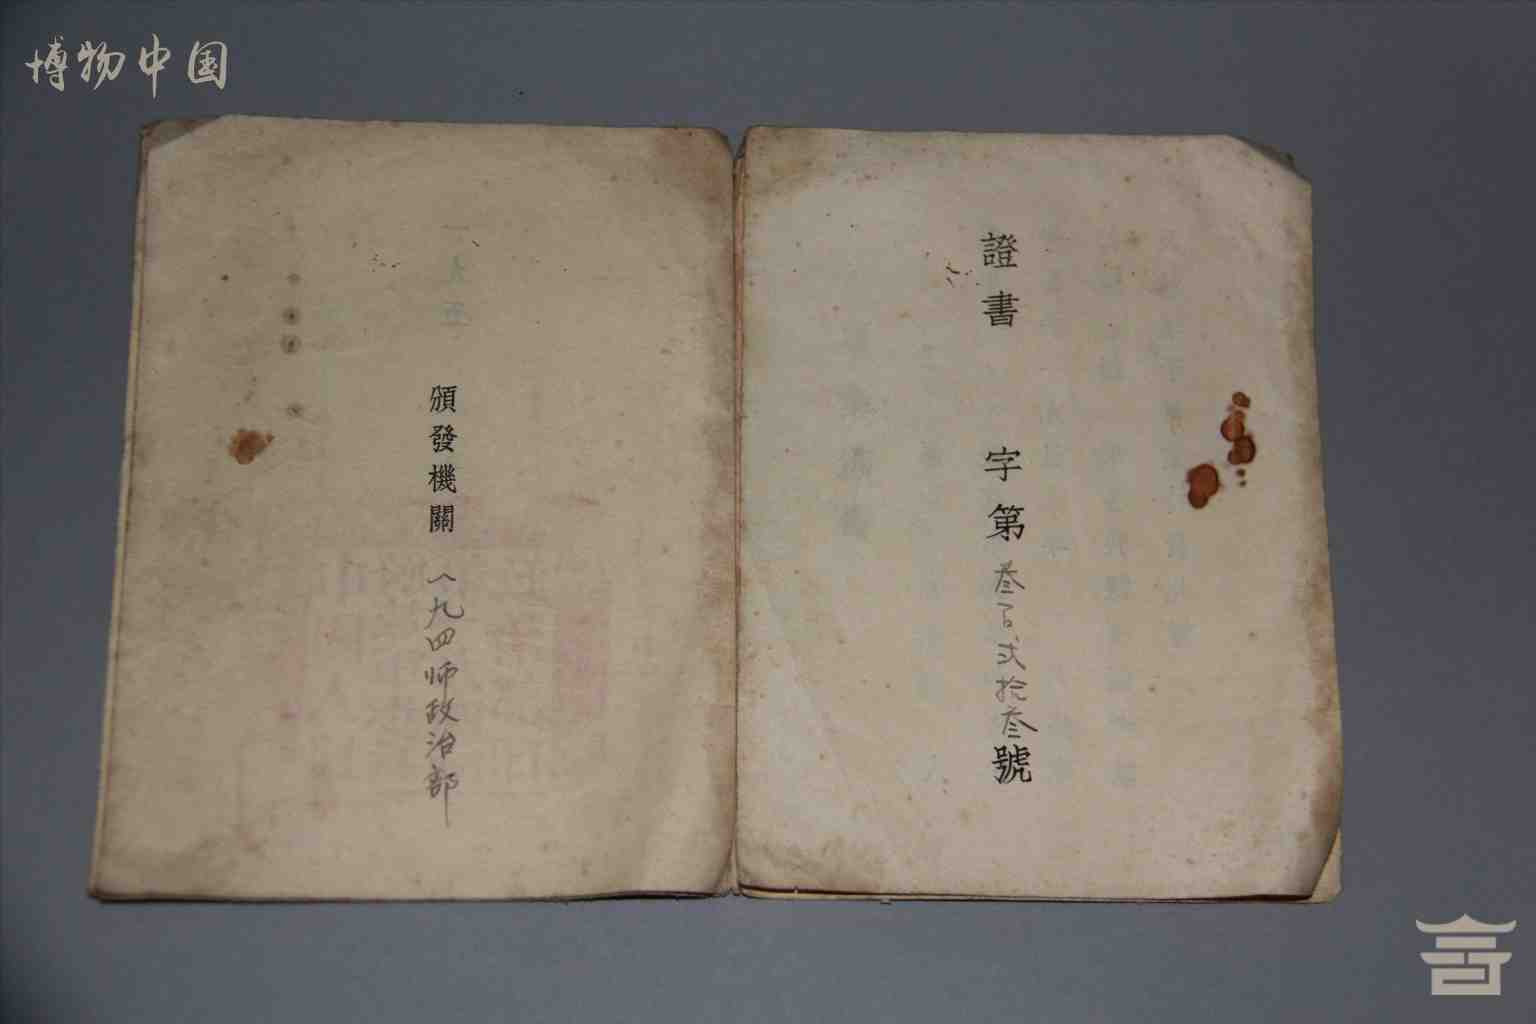 博物中国
證書 字第叁百弍拾叁號
頒發機關 一九四师政治部